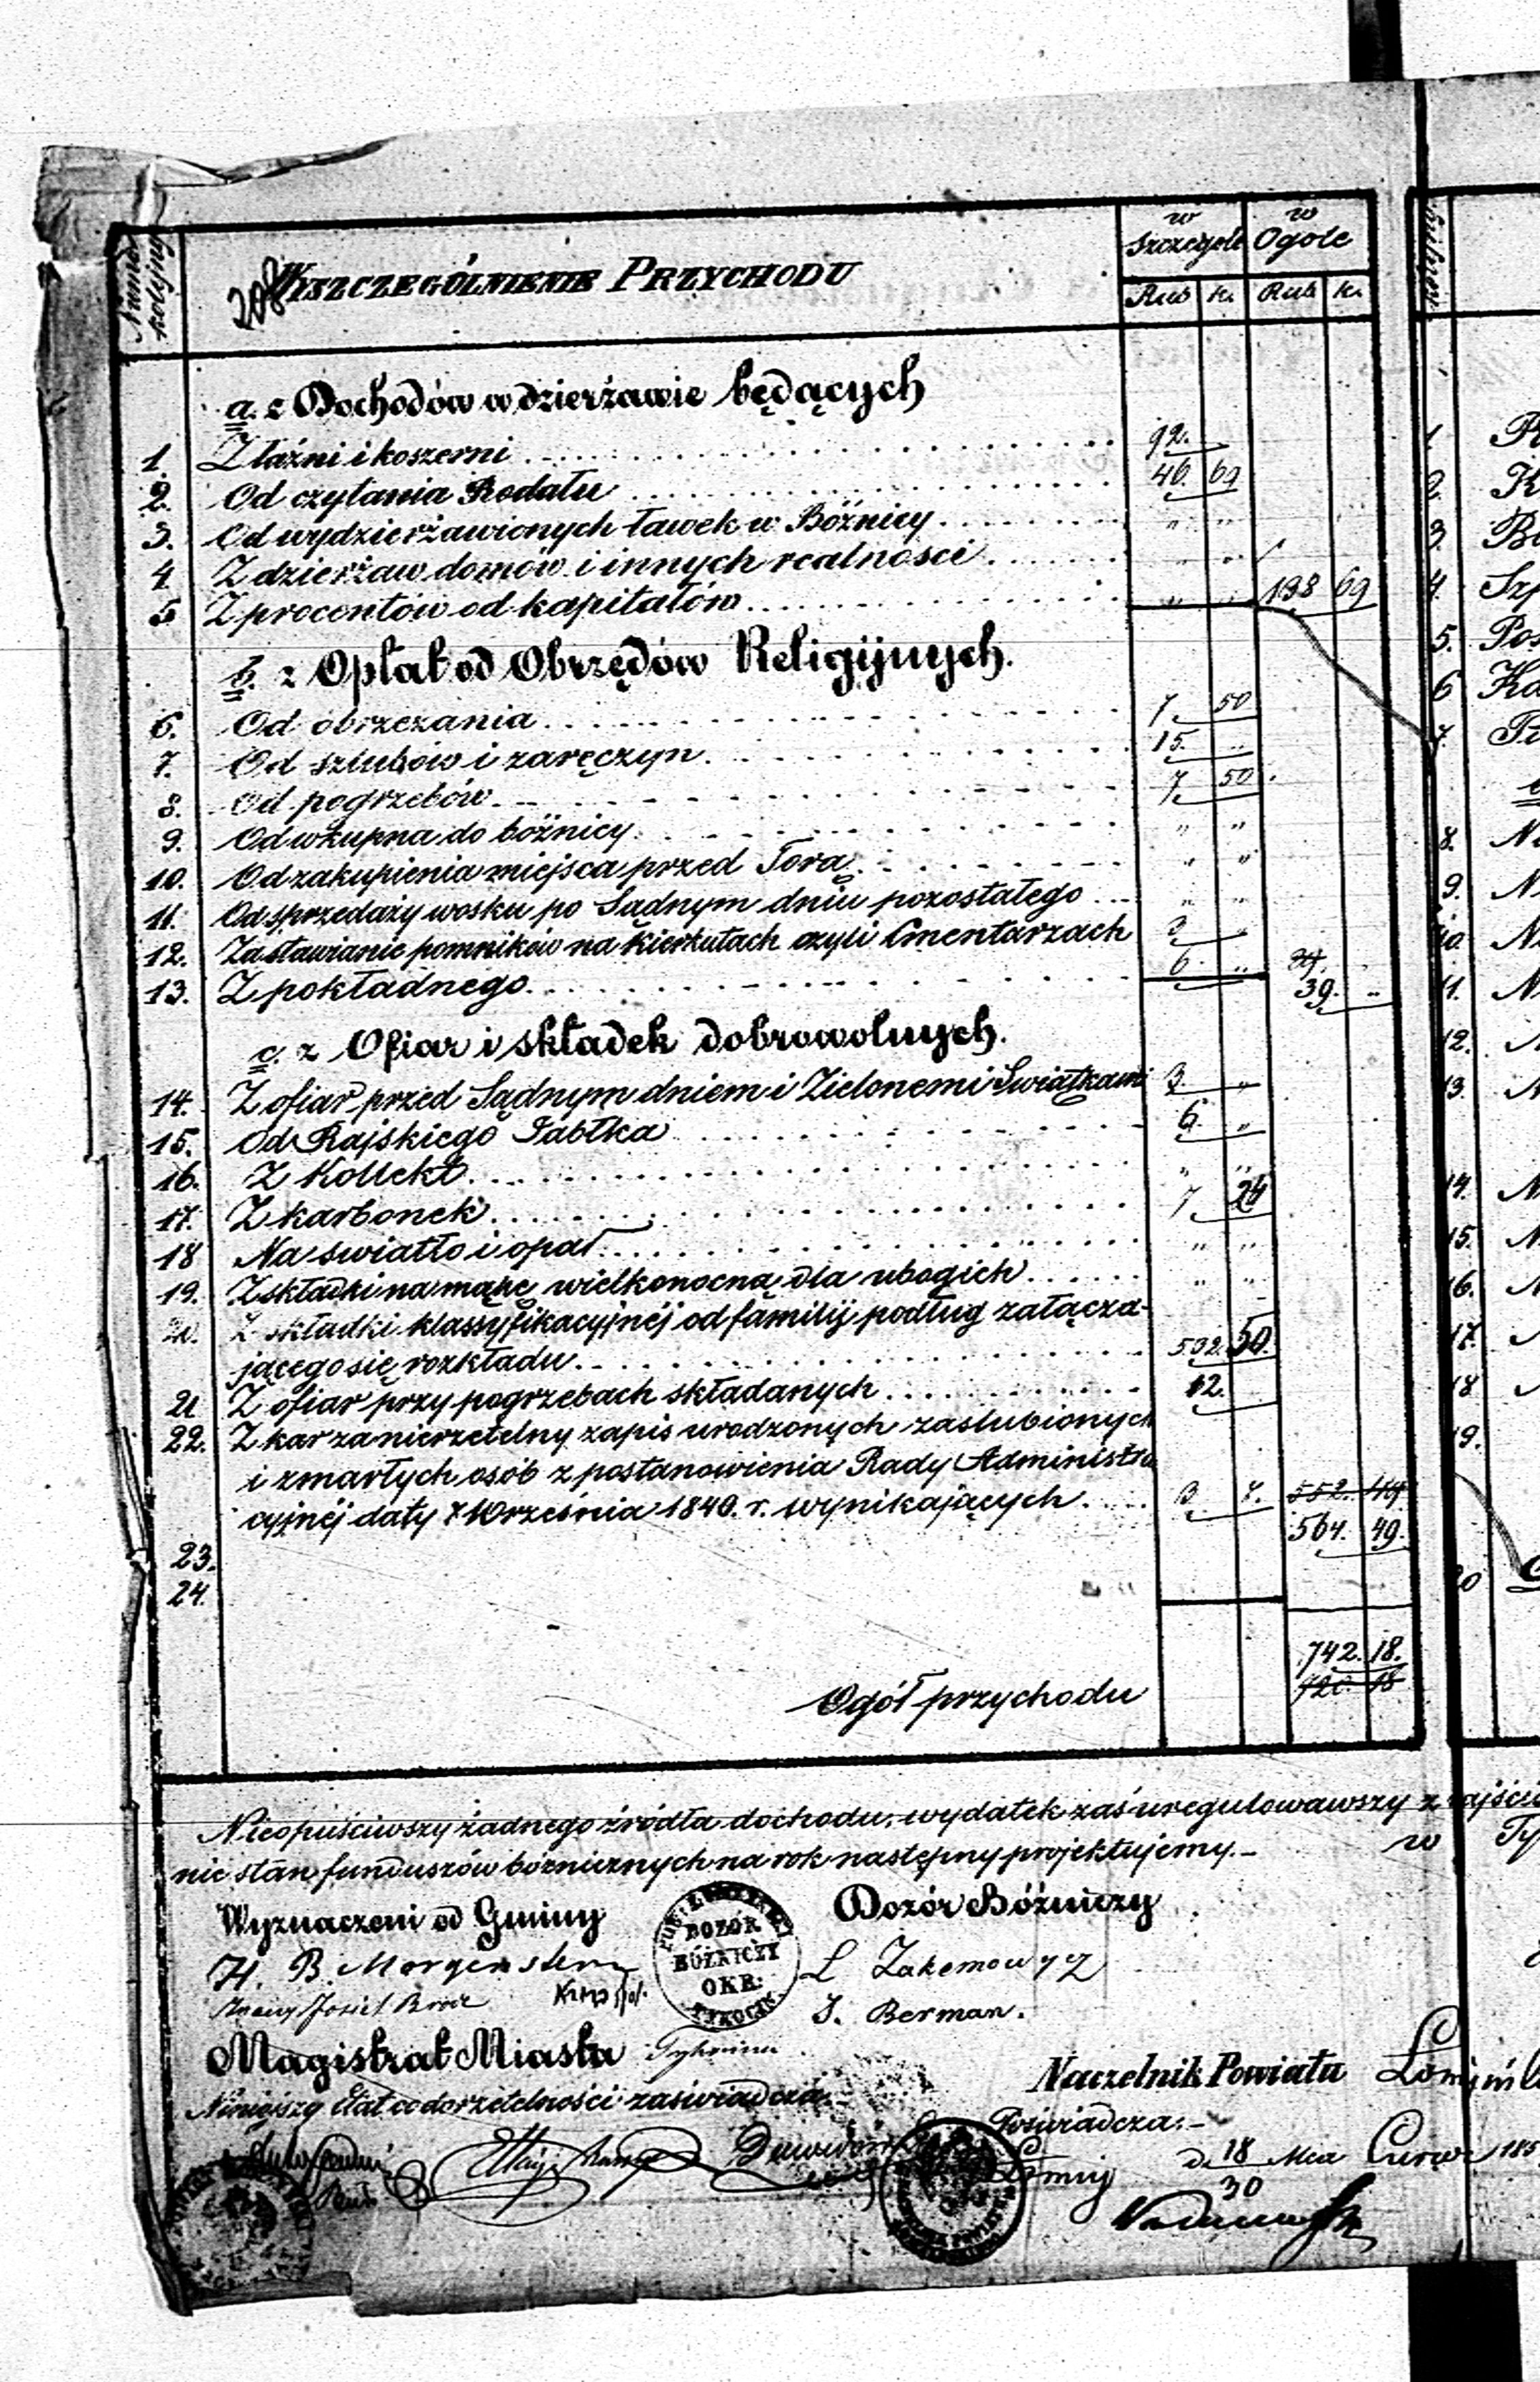 Numer kolejny
208
Wyszczególnienie Przychodu
w Szczególe
w Ogóle
Rub k. Rub k.
a. z Dochodów w dzierżawie będących
1. Z łaźni i koszerni 92.
2. Od czytania Rodału 46. 69
3. Od wydzierżawionych ławek w Bóżnicy " "
4. Z dzierżaw domów i innych realności " "
5 Z procentów od kapitałów " " 138 69
b. z Opłat od Obrzędów Religijnych.
6. Od obrzezania 7 50
7. Od szlubów i zaręczyn 15. "
8. Od pogrzebów 7 50
9. Od wkupna do bóżnicy " "
10. Od zakupienia miejsca przed Torą " "
11. Od sprzedaży wosku po Sądnym dniu pozostałego " "
12. Za stawianie pomników na kierkutach czyli Cmentarzach 3 "
13. Z pokładnego 6. "
39. "
c. z Ofiar i składek dobrowolnych.
14. Z ofiar przed Sądnym dniem i Zielonemi Swiątkami 3. "
15. Od Rajskiego Jabłka 6. "
16. Z Kollekt " "
17. Z karbonek 7 24
18 Na swiatło i opał " "
19. Z składki na mąkę wielkonocną dla ubogich " "
20. Z składki klassyfikacyjnéj od familij podług załącza-
jącego się rozkładu 532. 50.
21 Z ofiar przy pogrzebach składanych 12.
22. Z kar za nierzetelny zapis urodzonych zaslubionych
i zmarłych osób z postanowienia Rady Administra
cyjnéj daty 7 Września 1840. r. wynikających 3 7. 552. 49
564. 49.
23.
24.
742. 18.
Ogół przychodu 720. 18
Nieopuściwszy żadnego źródła dochodu, wydatek zaś uregulowawszy z
nie stan funduszów bóżnicznych na rok następny projektujemy.
w
Wyznaczeni od Gminy
Dozór Bóżniczy
DOZÓR BÓŻNICZY OKR: TYKOCIN
H. B. Morgenstern
L Zakemowycz
J. Berman.
Magistrat Miasta Tykocina
Naczelnik Powiatu
Niniejszy Etat co do rzetelności zaświadcza
Poświadcza:
d. 18/30 Mca Czerwc 185